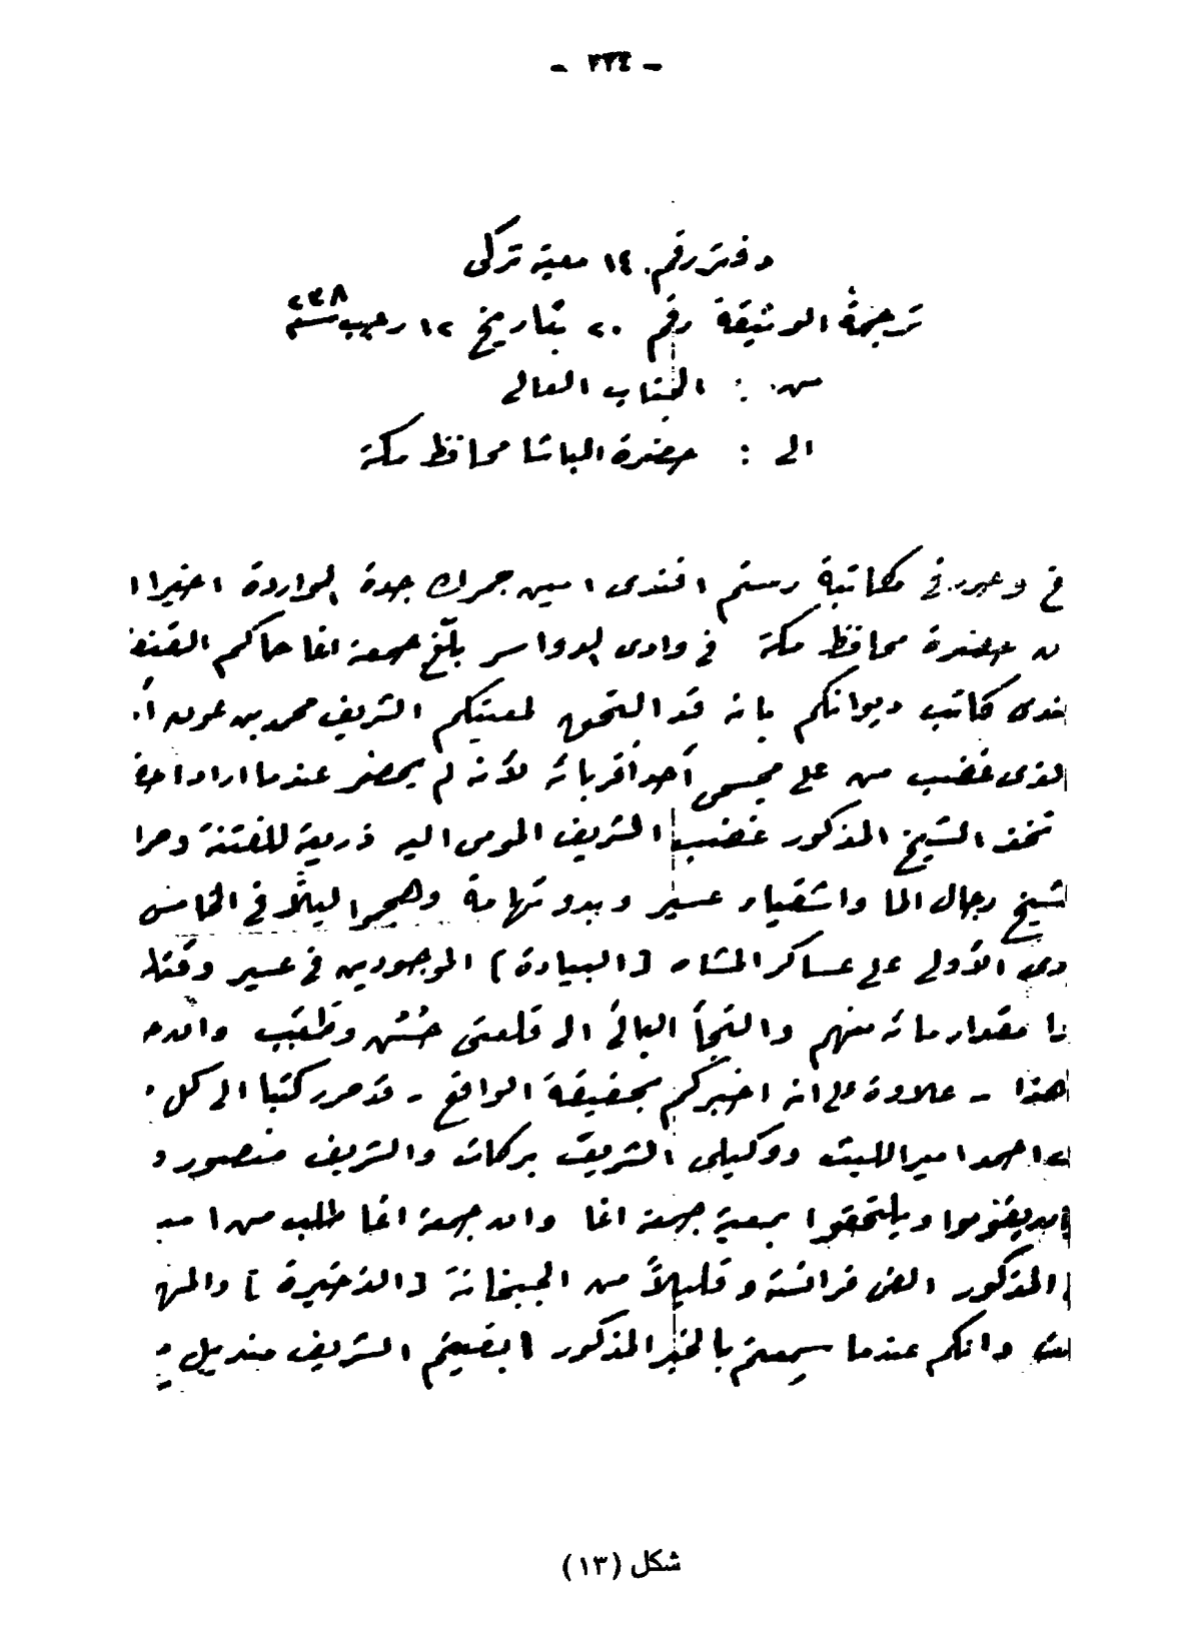 - ٢٢٤ -
دفتر رقم ١٤ معية تركى
ترجمة الوثيقة رقم ٢٠ بتاريخ ١٢ رجب سنة ٢٣٨
من : الجناب العالى
الى : حضرة الباشا محافظ مكة
فى مكاتبة رستم افندى امين جمرك جدة الواردة اخيرا ا
ن حضرة محافظ مكة فى وادى الدواسر بلّغ جمعة اغا حاكم القنفذ
ندى كاتب ديوانكم بانه قد التحق لمعيتكم الشريف محمد بن عون أ
الذى غضب من على مجسمى أحد أقربائه لأنه لم يحضر عندما اراد
تخذ الشيخ المذكور غضب الشريف المومى اليه ذريعة للفتنة وحرا
لشيخ رجال الما واشقياء عسير وبدو تهامة وهجموا ليلاً فى الخامس
دى الأولى على عساكر المشاه (البيادة) الموجودين فى عسير وقتلـ
را مقدار مائه منهم والتجأ الباقى الى قلعتى وطبب وان
هذا - علاوة على انه اخبركم بحقيقة الواقع - قد حرر كتبا الى كل
احمد امير الليث ووكيلى الشريف بركات والشريف منصور و
يقوموا ويلتحقوا بمعية جمعة اغا وان جمعة اغا طلب من ا
المذكور الفى فرانسة وقليلاً من الجبخانة (الذخيرة) والمهـ
وانكم عندما سمعتم بالخبر المذكور ابقيتم الشريف منديل
شكل (١٣)